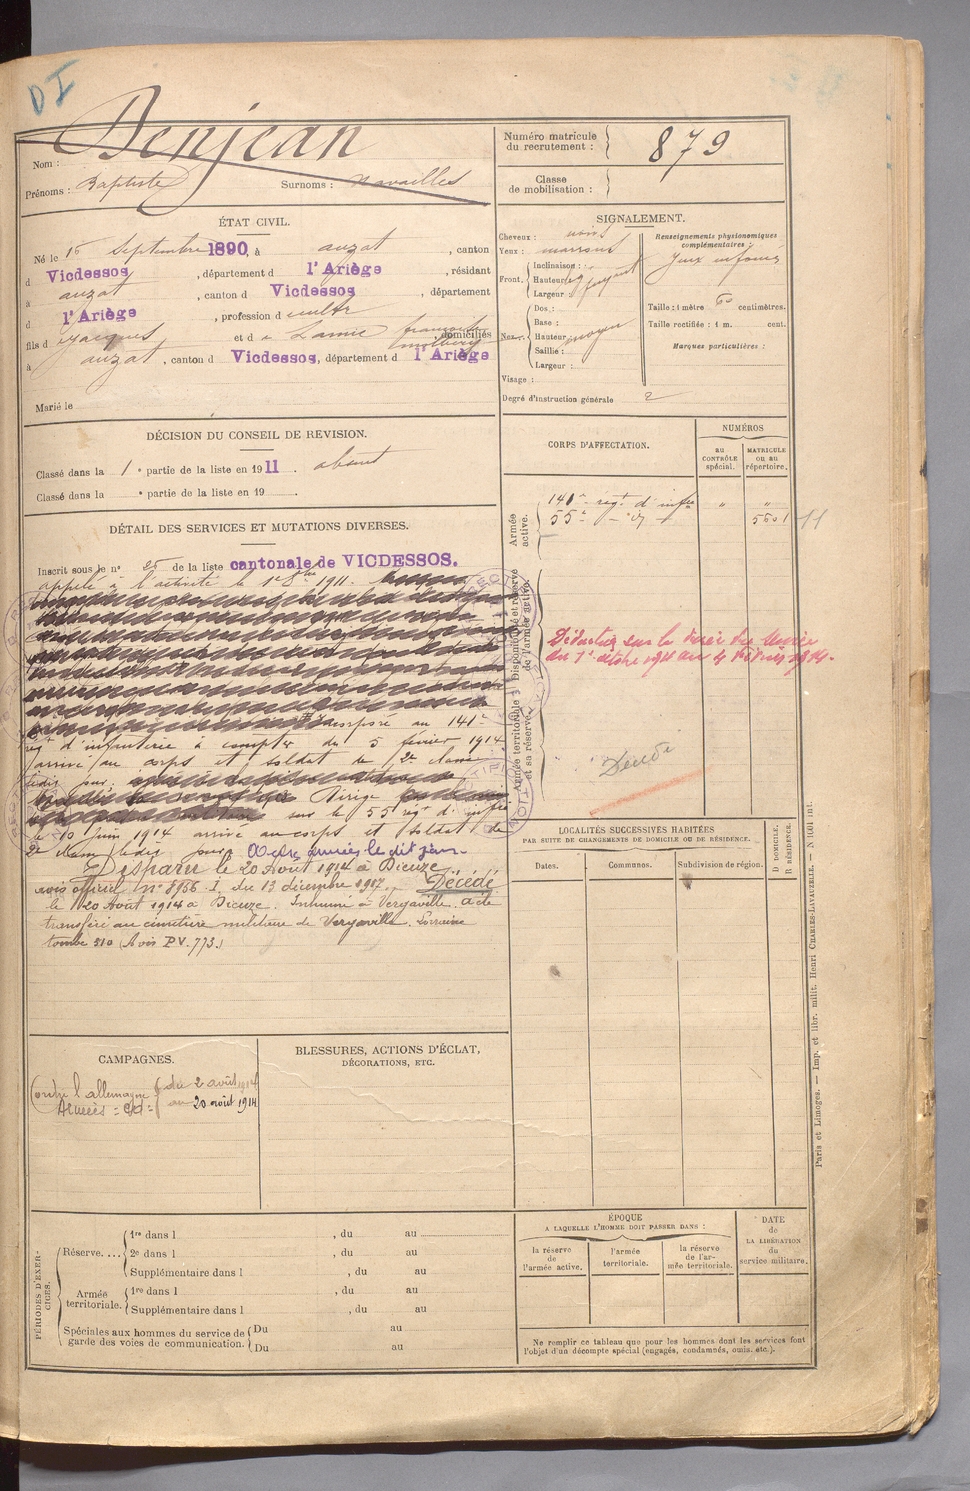 D I
Denjean
Nom :
Prénoms : Baptiste Surnoms : Navailles
Numéro matricule
du recrutement : 879
Classe
de mobilisation :
ÉTAT CIVIL.
Né le 15 Septembre 1890, à auzat, canton
d Vicdessos, département d l'Ariège, résidant
à auzat, canton d Vicdessos, département
d l'Ariège, profession d cultr
fils d Jacques et d domiciliés
à auzat, canton d Vicdessos, département d l'Ariège
Marié le
SIGNALEMENT.
Cheveux : noirs
Yeux : marrons
Front. Inclinaison :
Hauteur :
Largeur :
Nez. Dos :
Base :
Hauteur : moyen
Saillie :
Largeur :
Visage :
Degré d'instruction générale 2
Renseignements physionomiques
complémentaires :
Yeux enfoncés
Taille : 1 mètre 60 centimètres.
Taille rectifiée : 1 m. cent.
Marques particulières :
DÉCISION DU CONSEIL DE REVISION.
Classé dans la 1e partie de la liste en 1911. absent
Classé dans la e partie de la liste en 19 .
DÉTAIL DES SERVICES ET MUTATIONS DIVERSES.
Inscrit sous le n° 25 de la liste cantonale de VICDESSOS.
appelé à l'activité le 1er 8bre 1911.
Incorporé au 141e
régt d'infanterie à compter du 5 février 1914
arrivé au corps et soldat de 2e classe
ledit jour. Dirigé
sur le 55e régt d'infie
le 10 Juin 1914 arrivé au corps et soldat de
2e classe ledit jour. Aux armées le dit jour.
Disparu le 20 Août 1914 à Dieuze
avis officiel n° 8956 I. du 13 décembre 1917. Décédé
le 20 Août 1914 à Dieuze. Inhumé à Vergaville. a été
transféré au cimetière militaire de Vergaville. Lorraine
tombe 310 (Avis P.V. 773.)
CORPS D'AFFECTATION.
NUMÉROS
au
CONTRÔLE
spécial.
MATRICULE
ou au
répertoire.
Armée
active.
141e régt d'infie " "
55e — d° — 5501 11
Disponibilité et réserve
de l'armée active.
Déduction sur la durée du service
du 1er octobre 1911 au 4 février 1914.
Armée territoriale
et sa réserve.
Décédé
LOCALITÉS SUCCESSIVES HABITÉES
PAR SUITE DE CHANGEMENTS DE DOMICILE OU DE RÉSIDENCE.
Dates. Communes. Subdivision de région.
D DOMICILE.
R RÉSIDENCE.
CAMPAGNES.
Contre l'allemagne du 2 août 1914
Armées au 20 août 1914
BLESSURES, ACTIONS D'ÉCLAT,
DÉCORATIONS, ETC.
PÉRIODES D'EXER-
CICES.
Réserve. ... 1re dans l , du au
2e dans l , du au
Supplémentaire dans l , du au
Armée
territoriale. 1re dans l , du au
Supplémentaire dans l , du au
Spéciales aux hommes du service de
garde des voies de communication. Du au
Du au
ÉPOQUE
A LAQUELLE L'HOMME DOIT PASSER DANS :
la réserve
de
l'armée active.
l'armée
territoriale.
la réserve
de l'ar-
mée territoriale.
DATE
de
LA LIBÉRATION
du
service militaire.
Ne remplir ce tableau que pour les hommes dont les services font
l'objet d'un décompte spécial (engagés, condamnés, omis, etc.).
Paris et Limoges. — Imp. et libr. milit. Henri CHARLES-LAVAUZELLE. — N° 1001 int.